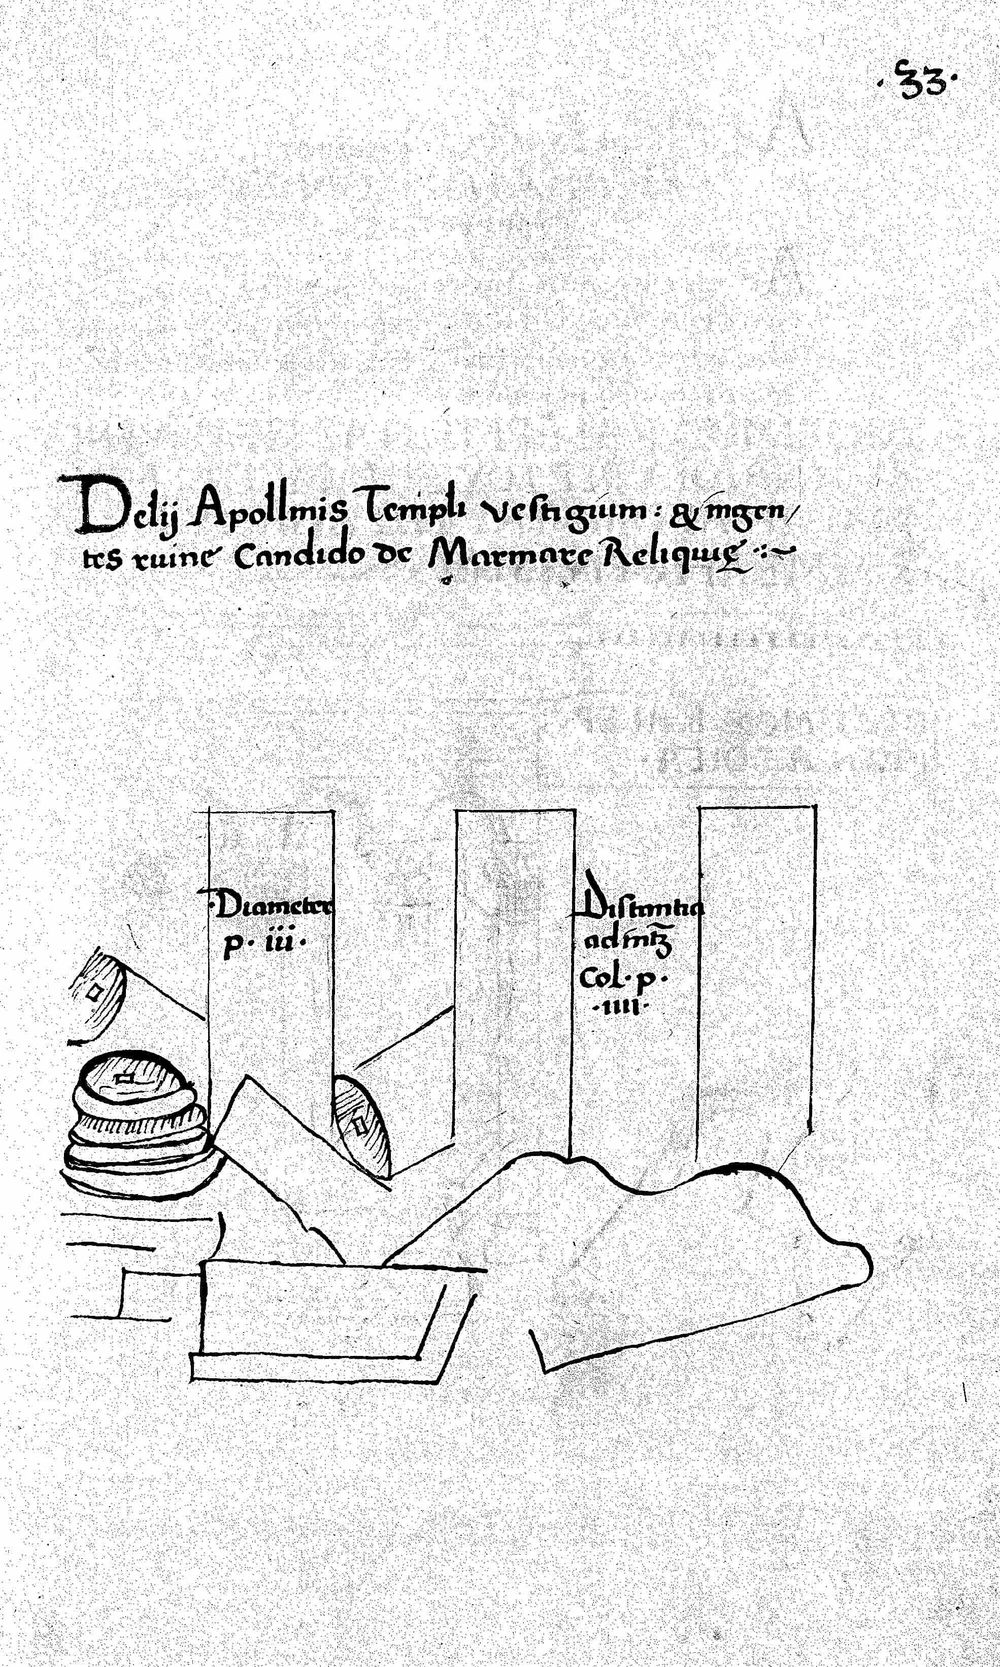 ·33·
Delij Apollinis Templi vestigium: & ingen/
tes ruine Candido de Marmare Reliquię
Diameter
p. iii.
Distantia
ad
Col. p.
·iiii·